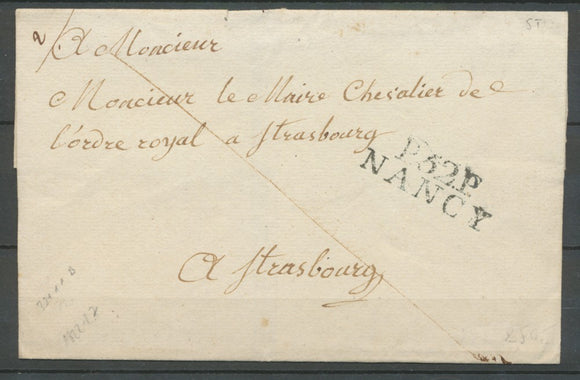 A Moncieur
Moncieur le Maire Chevalier de
l'ordre royal a Strasbourg
P52P
NANCY
A Strasbourg